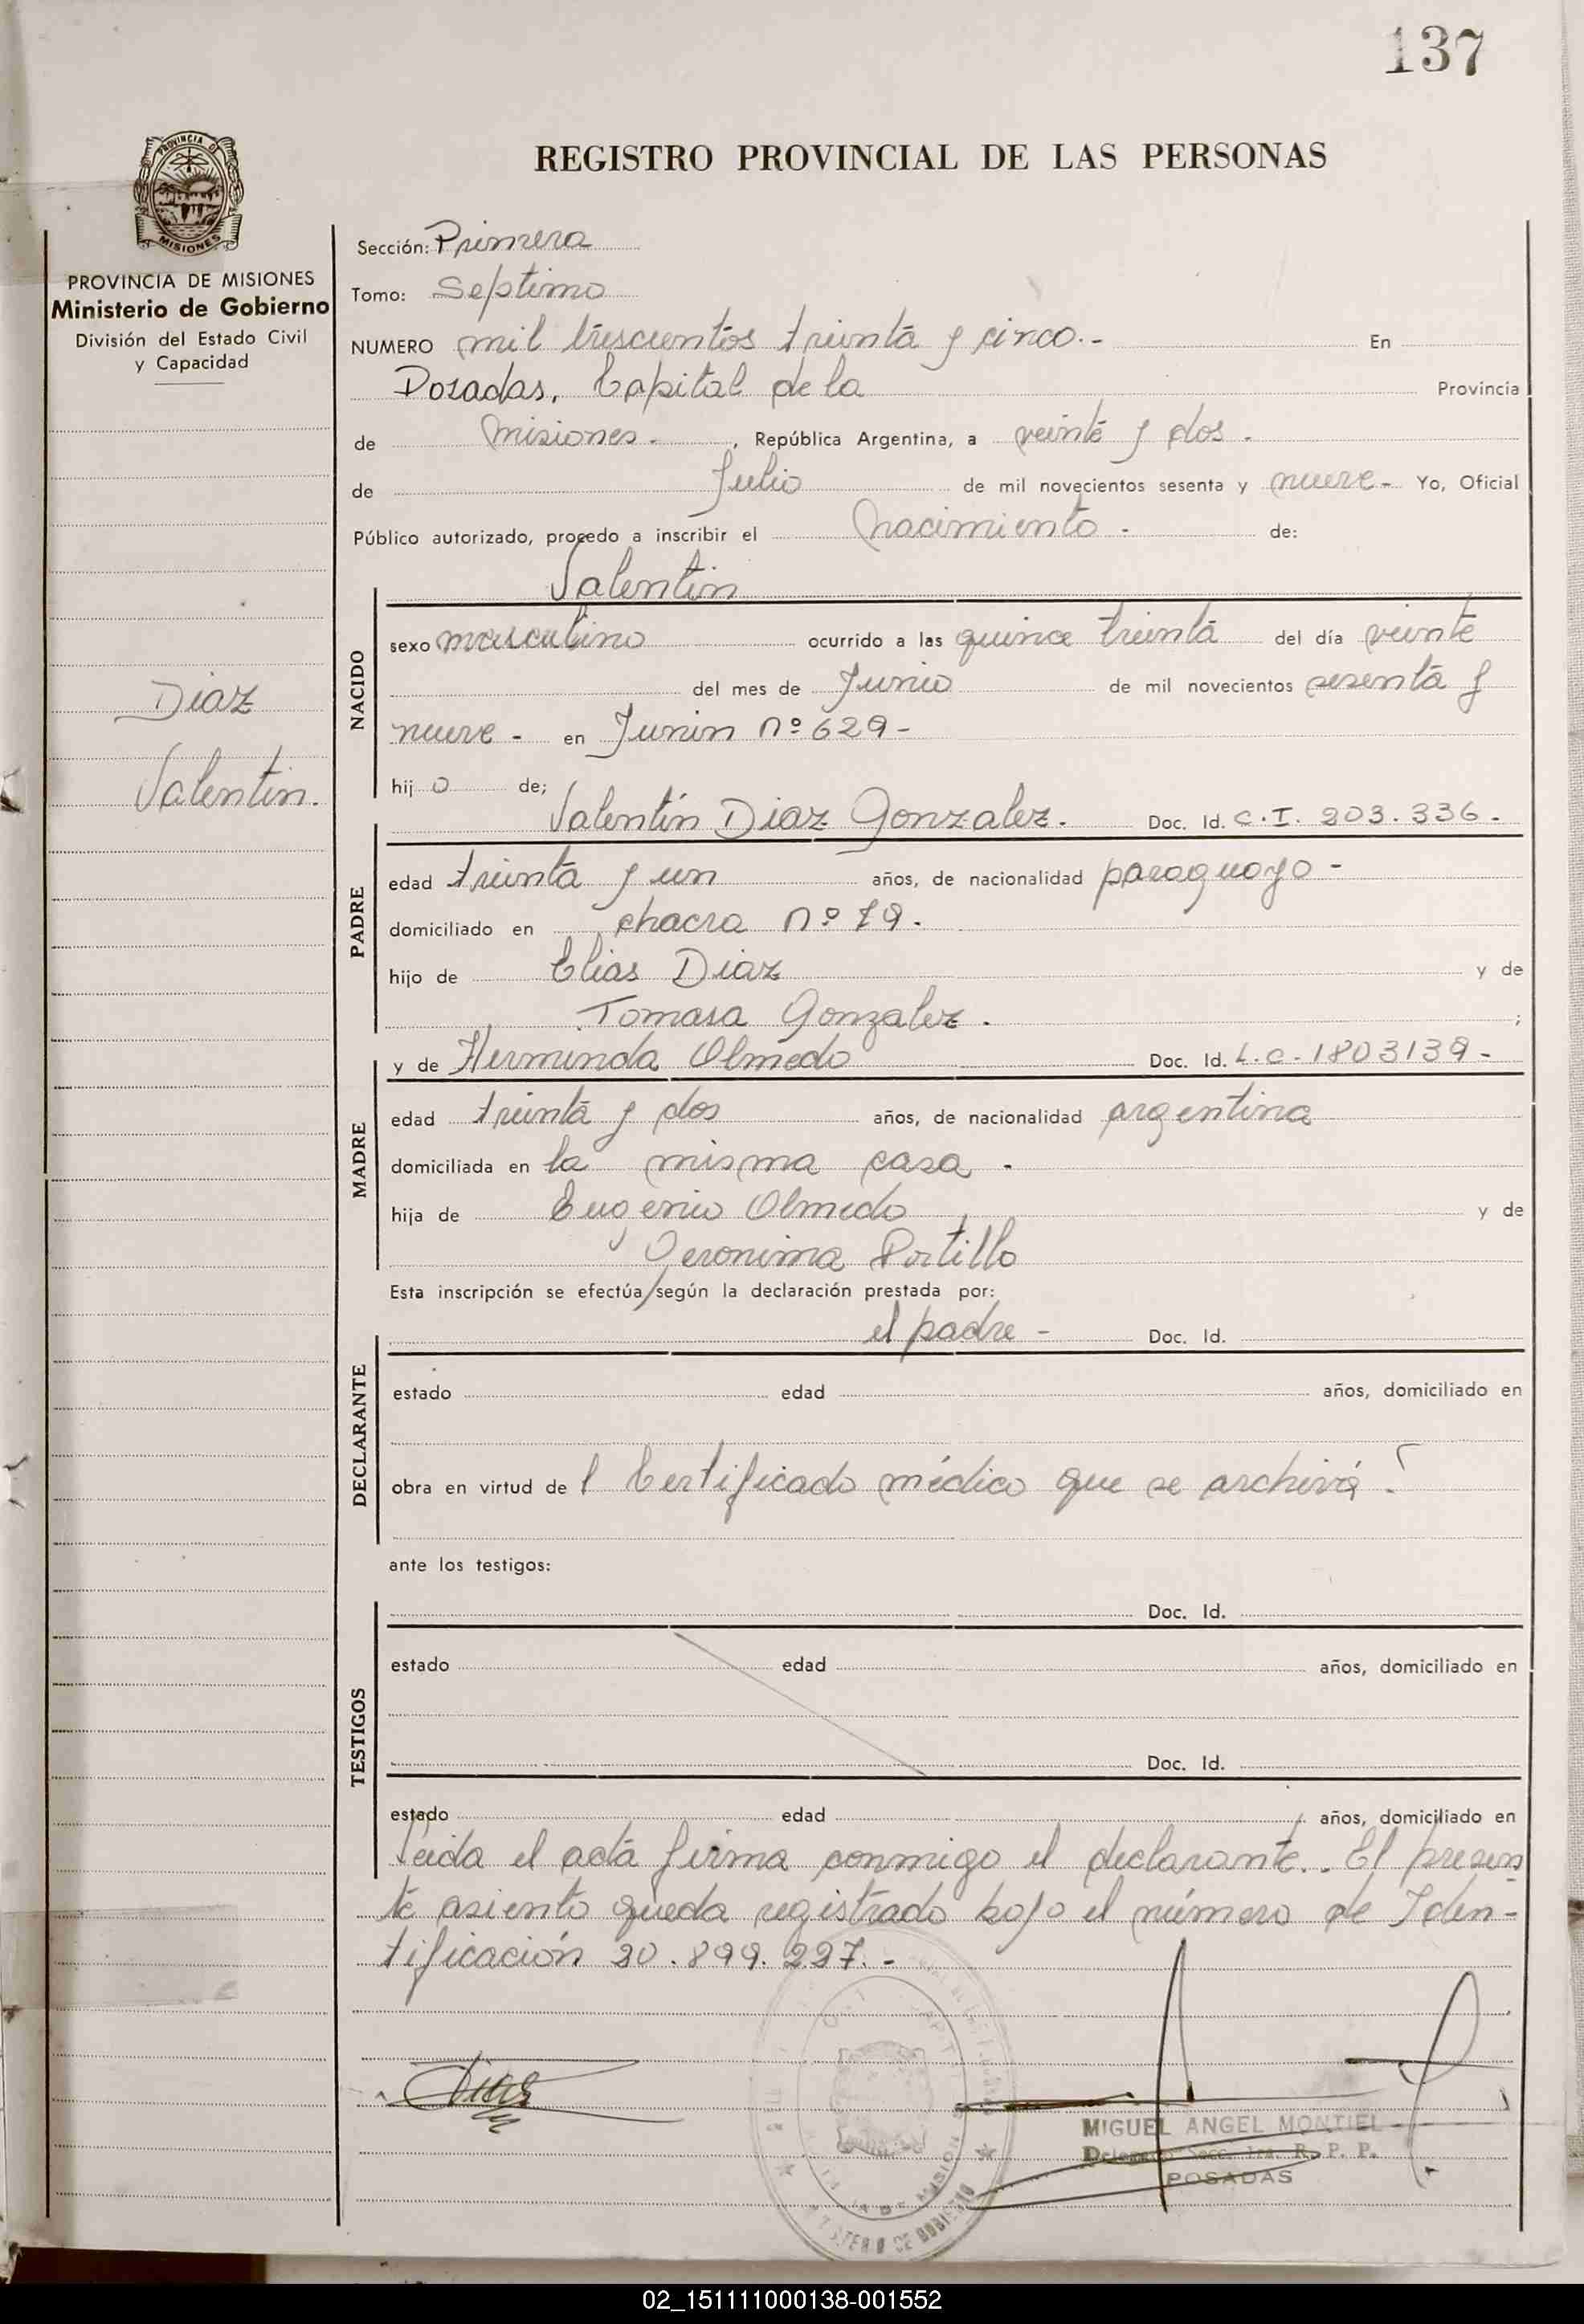 137
PROVINCIA DE
MISIONES
REGISTRO PROVINCIAL DE LAS PERSONAS
PROVINCIA DE MISIONES
Ministerio de Gobierno
División del Estado Civil
y Capacidad
Diaz
Valentin.
Sección: Primera
Tomo: Septimo
NUMERO mil trescientos treinta y cinco.- En
Posadas, Capital de la Provincia
de Misiones.-, República Argentina, a veinte y dos.
de Julio de mil novecientos sesenta y nueve- Yo, Oficial
Público autorizado, procedo a inscribir el nacimiento - de:
Valentin
NACIDO
sexo masculino ocurrido a las quince treinta del día veinte
del mes de Junio de mil novecientos sesenta y
nueve - en Junin nº 629-
hij o de;
Valentín Diaz Gonzalez. Doc. Id. C.I. 203.336-
PADRE
edad treinta y un años, de nacionalidad paraguayo-
domiciliado en chacra nº 79.
hijo de Elias Diaz y de
Tomasa Gonzalez. ;
y de Herminda Olmedo Doc. Id. L.C-1803139-
MADRE
edad treinta y dos años, de nacionalidad argentina
domiciliada en la misma casa.
hija de Eugenio Olmedo y de
Geronima Portillo
Esta inscripción se efectúa según la declaración prestada por:
el padre - Doc. Id.
DECLARANTE
estado edad años, domiciliado en
obra en virtud de l Certificado médico que se archiva.
ante los testigos:
Doc. Id.
TESTIGOS
estado edad años, domiciliado en
Doc. Id.
estado edad años, domiciliado en
Leida el acta firma conmigo el declarante.. El presen
te asiento queda registrado bajo el número de Iden-
tificación 20.899.227.-
Diaz
MIGUEL ANGEL MONTIEL
Delegado Secc. 1ra. R. P. P.
POSADAS
02_151111000138-001552